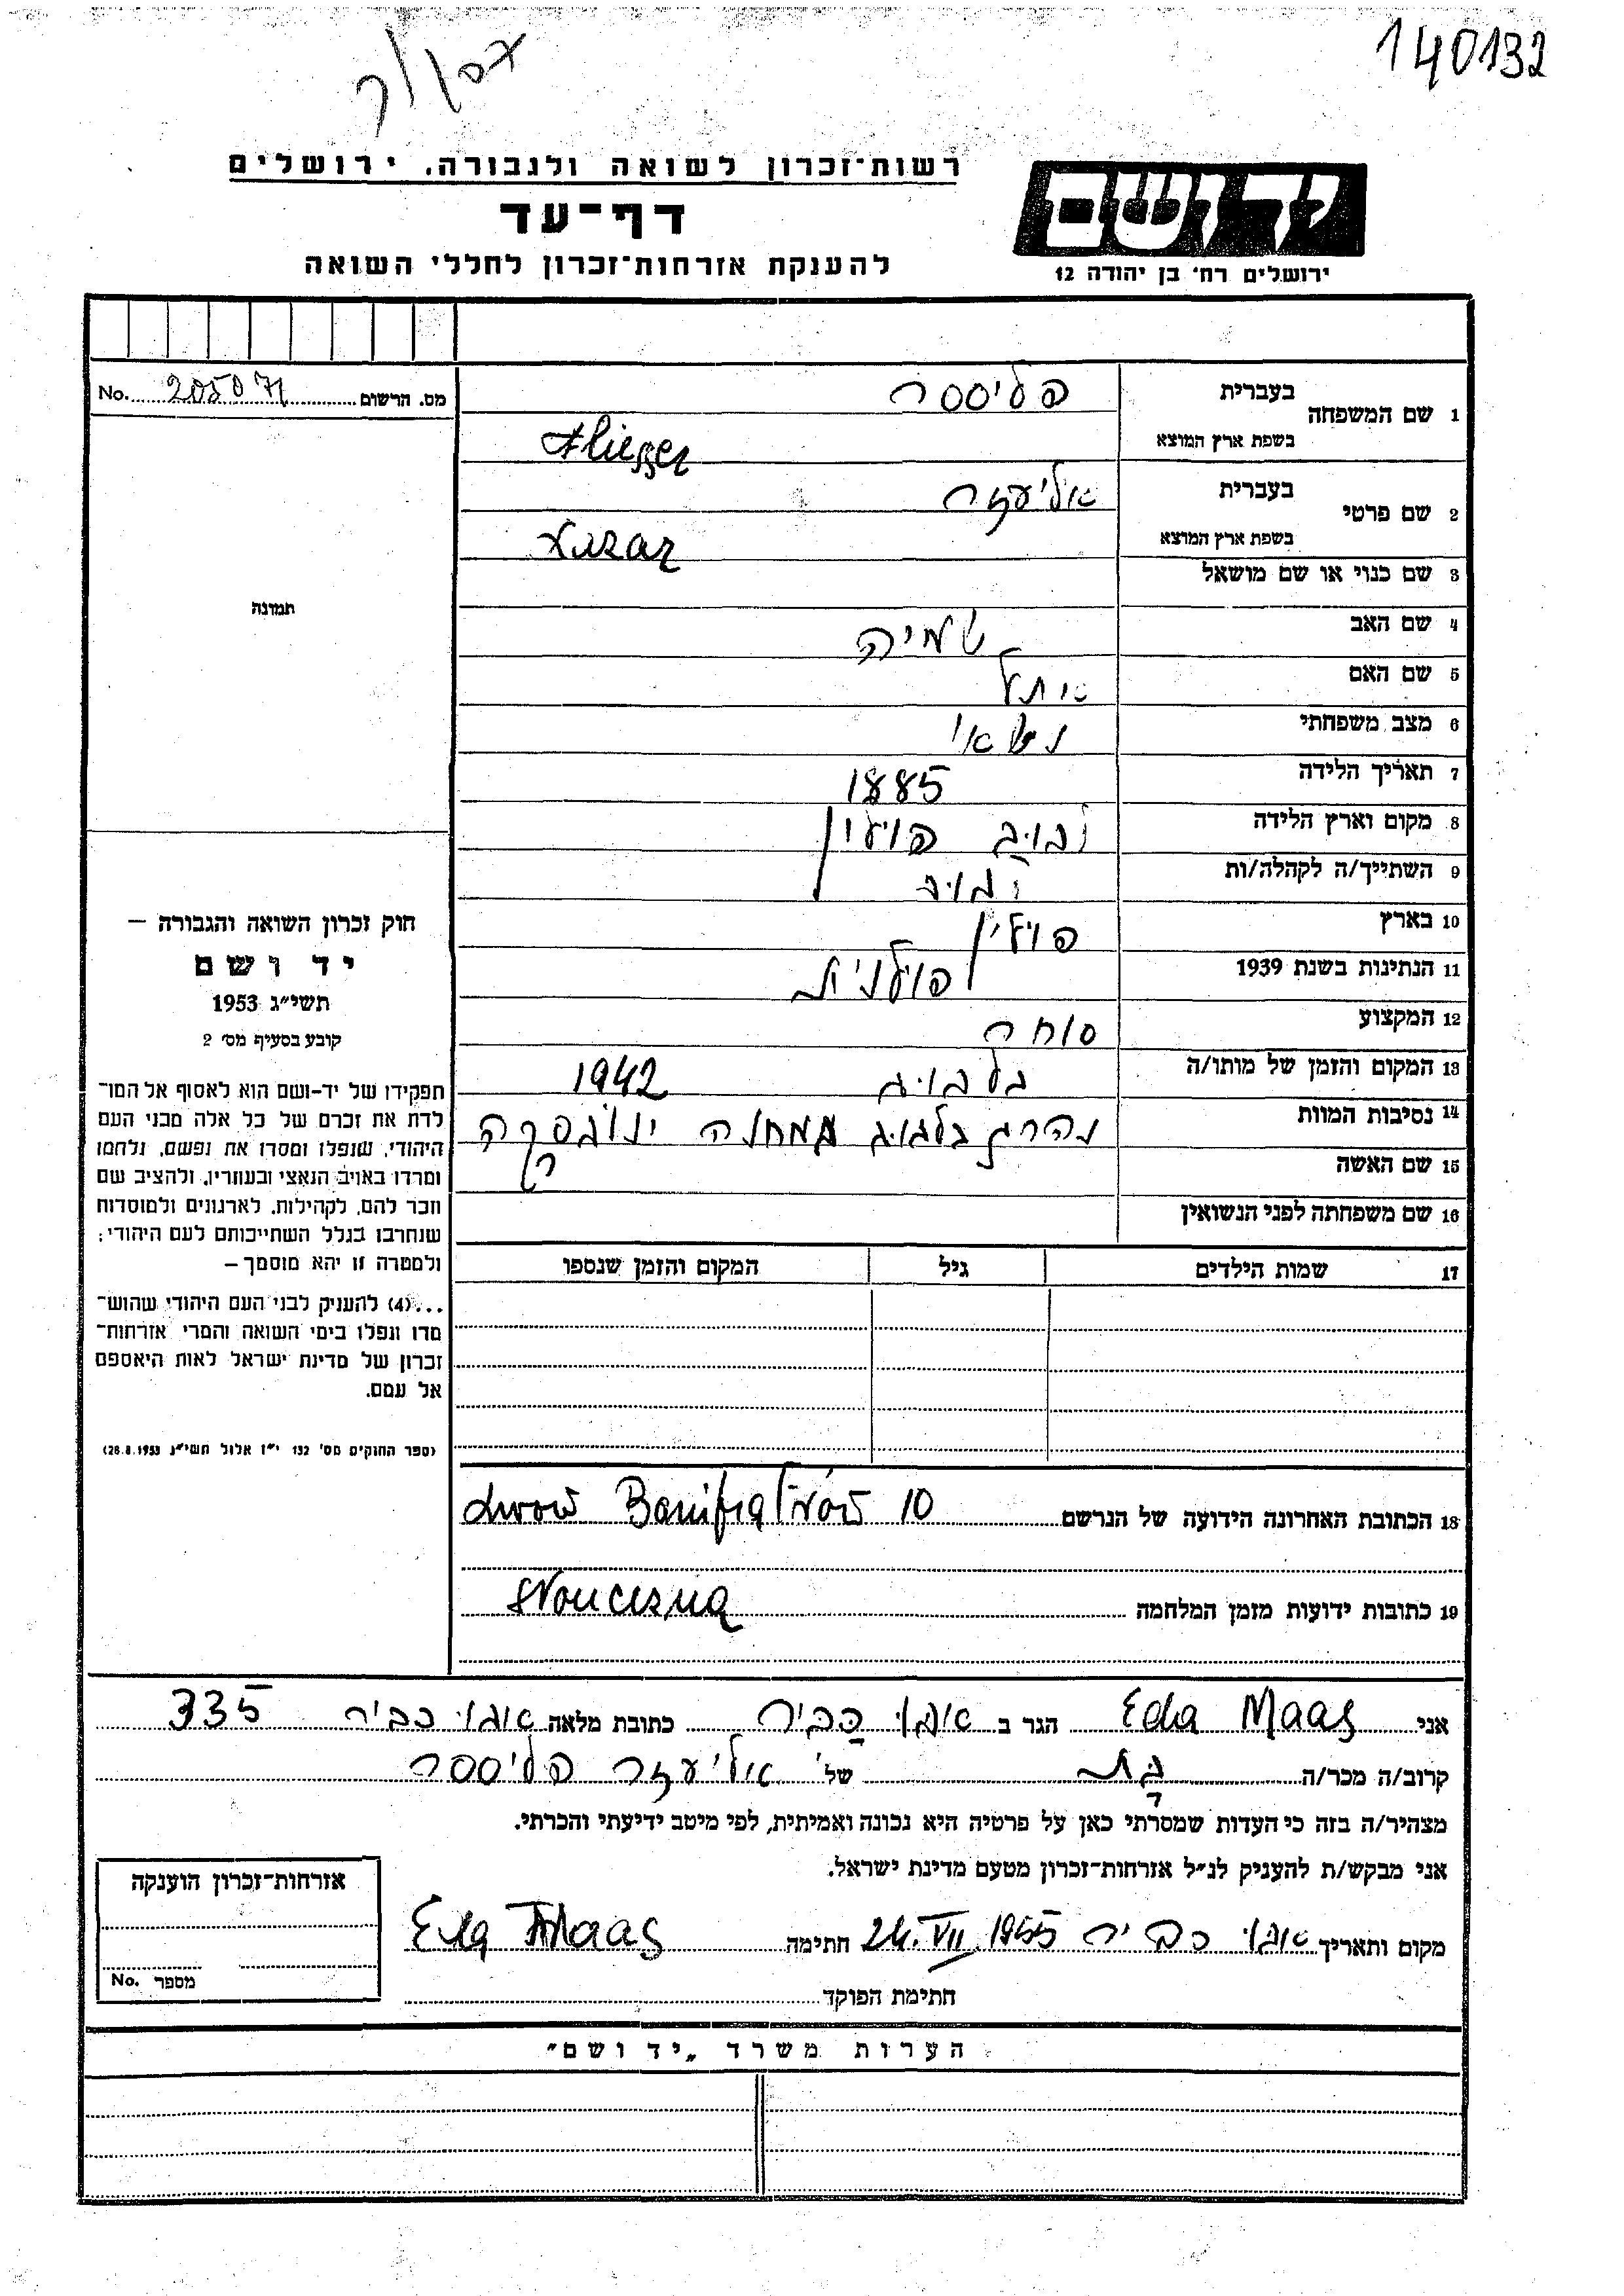 140132
רשות־זכרון לשואה ולגבורה, ירושלים
דף־עד
להענקת אזרחות־זכרון לחללי השואה
יד ושם
ירושלים רח' בן יהודה 12
מס. הרשום 205071 No.
תמונה
1 שם המשפחה
בעברית פליסר
בשפת ארץ המוצא
2 שם פרטי
בעברית אליעזר
בשפת ארץ המוצא Lazar
3 שם כנוי או שם מושאל
4 שם האב
5 שם האם
6 מצב משפחתי נשאוי
7 תאריך הלידה 1885
8 מקום וארץ הלידה לבוב פולין
9 השתייך/ה לקהלה/ות לבוב
10 בארץ פולין
11 הנתינות בשנת 1939 פולנית
12 המקצוע סוחר
13 המקום והזמן של מותו/ה בלבוב 1942
14 נסיבות המוות נהרג בלבוב במחנה ינובסקה
15 שם האשה
16 שם משפחתה לפני הנשואין
17 שמות הילדים גיל המקום והזמן שנספו
חוק זכרון השואה והגבורה —
יד ושם
תשי״ג 1953
קובע בסעיף מס׳ 2
תפקידו של יד-ושם הוא לאסוף אל המו־
לדת את זכרם של כל אלה מבני העם
היהודי, שנפלו ומסרו את נפשם, נלחמו
ומרדו באויב הנאצי ובעוזריו, ולהציב שם
וזכר להם, לקהילות, לארגונים ולמוסדות
שנחרבו בגלל השתייכותם לעם היהודי;
ולמטרה זו יהא מוסמך —
...(4) להעניק לבני העם היהודי שהוש־
מדו ונפלו בימי השואה והמרי אזרחות־
זכרון של מדינת ישראל לאות היאספם
אל עמם.
(ספר החוקים מס׳ 132 י״ז אלול תשי״ג 28.8.1953)
18 הכתובת האחרונה הידועה של הנרשם Lwow 10
19 כתובות ידועות מזמן המלחמה
אני Eda Maas הגר ב כביר כתובת מלאה כביר 335
קרוב/ה מכר/ה בת של אליעזר פליסר
מצהיר/ה בזה כי העדות שמסרתי כאן על פרטיה היא נכונה ואמיתית, לפי מיטב ידיעתי והכרתי.
אני מבקש/ת להעניק לנ״ל אזרחות־זכרון מטעם מדינת ישראל.
מקום ותאריך כביר 24.VII.1955 חתימה Eda Maas
חתימת הפוקד
אזרחות־זכרון הוענקה
מספר No.
הערות משרד „יד ושם״